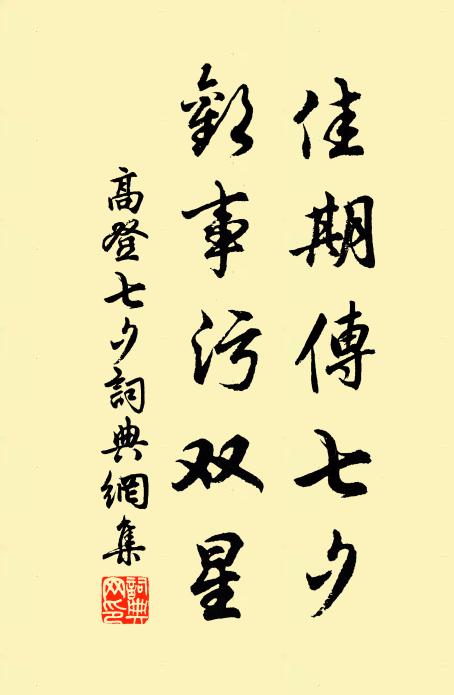 佳期傳七夕
歡事污双星
高登七夕詞典網集
詞典网印